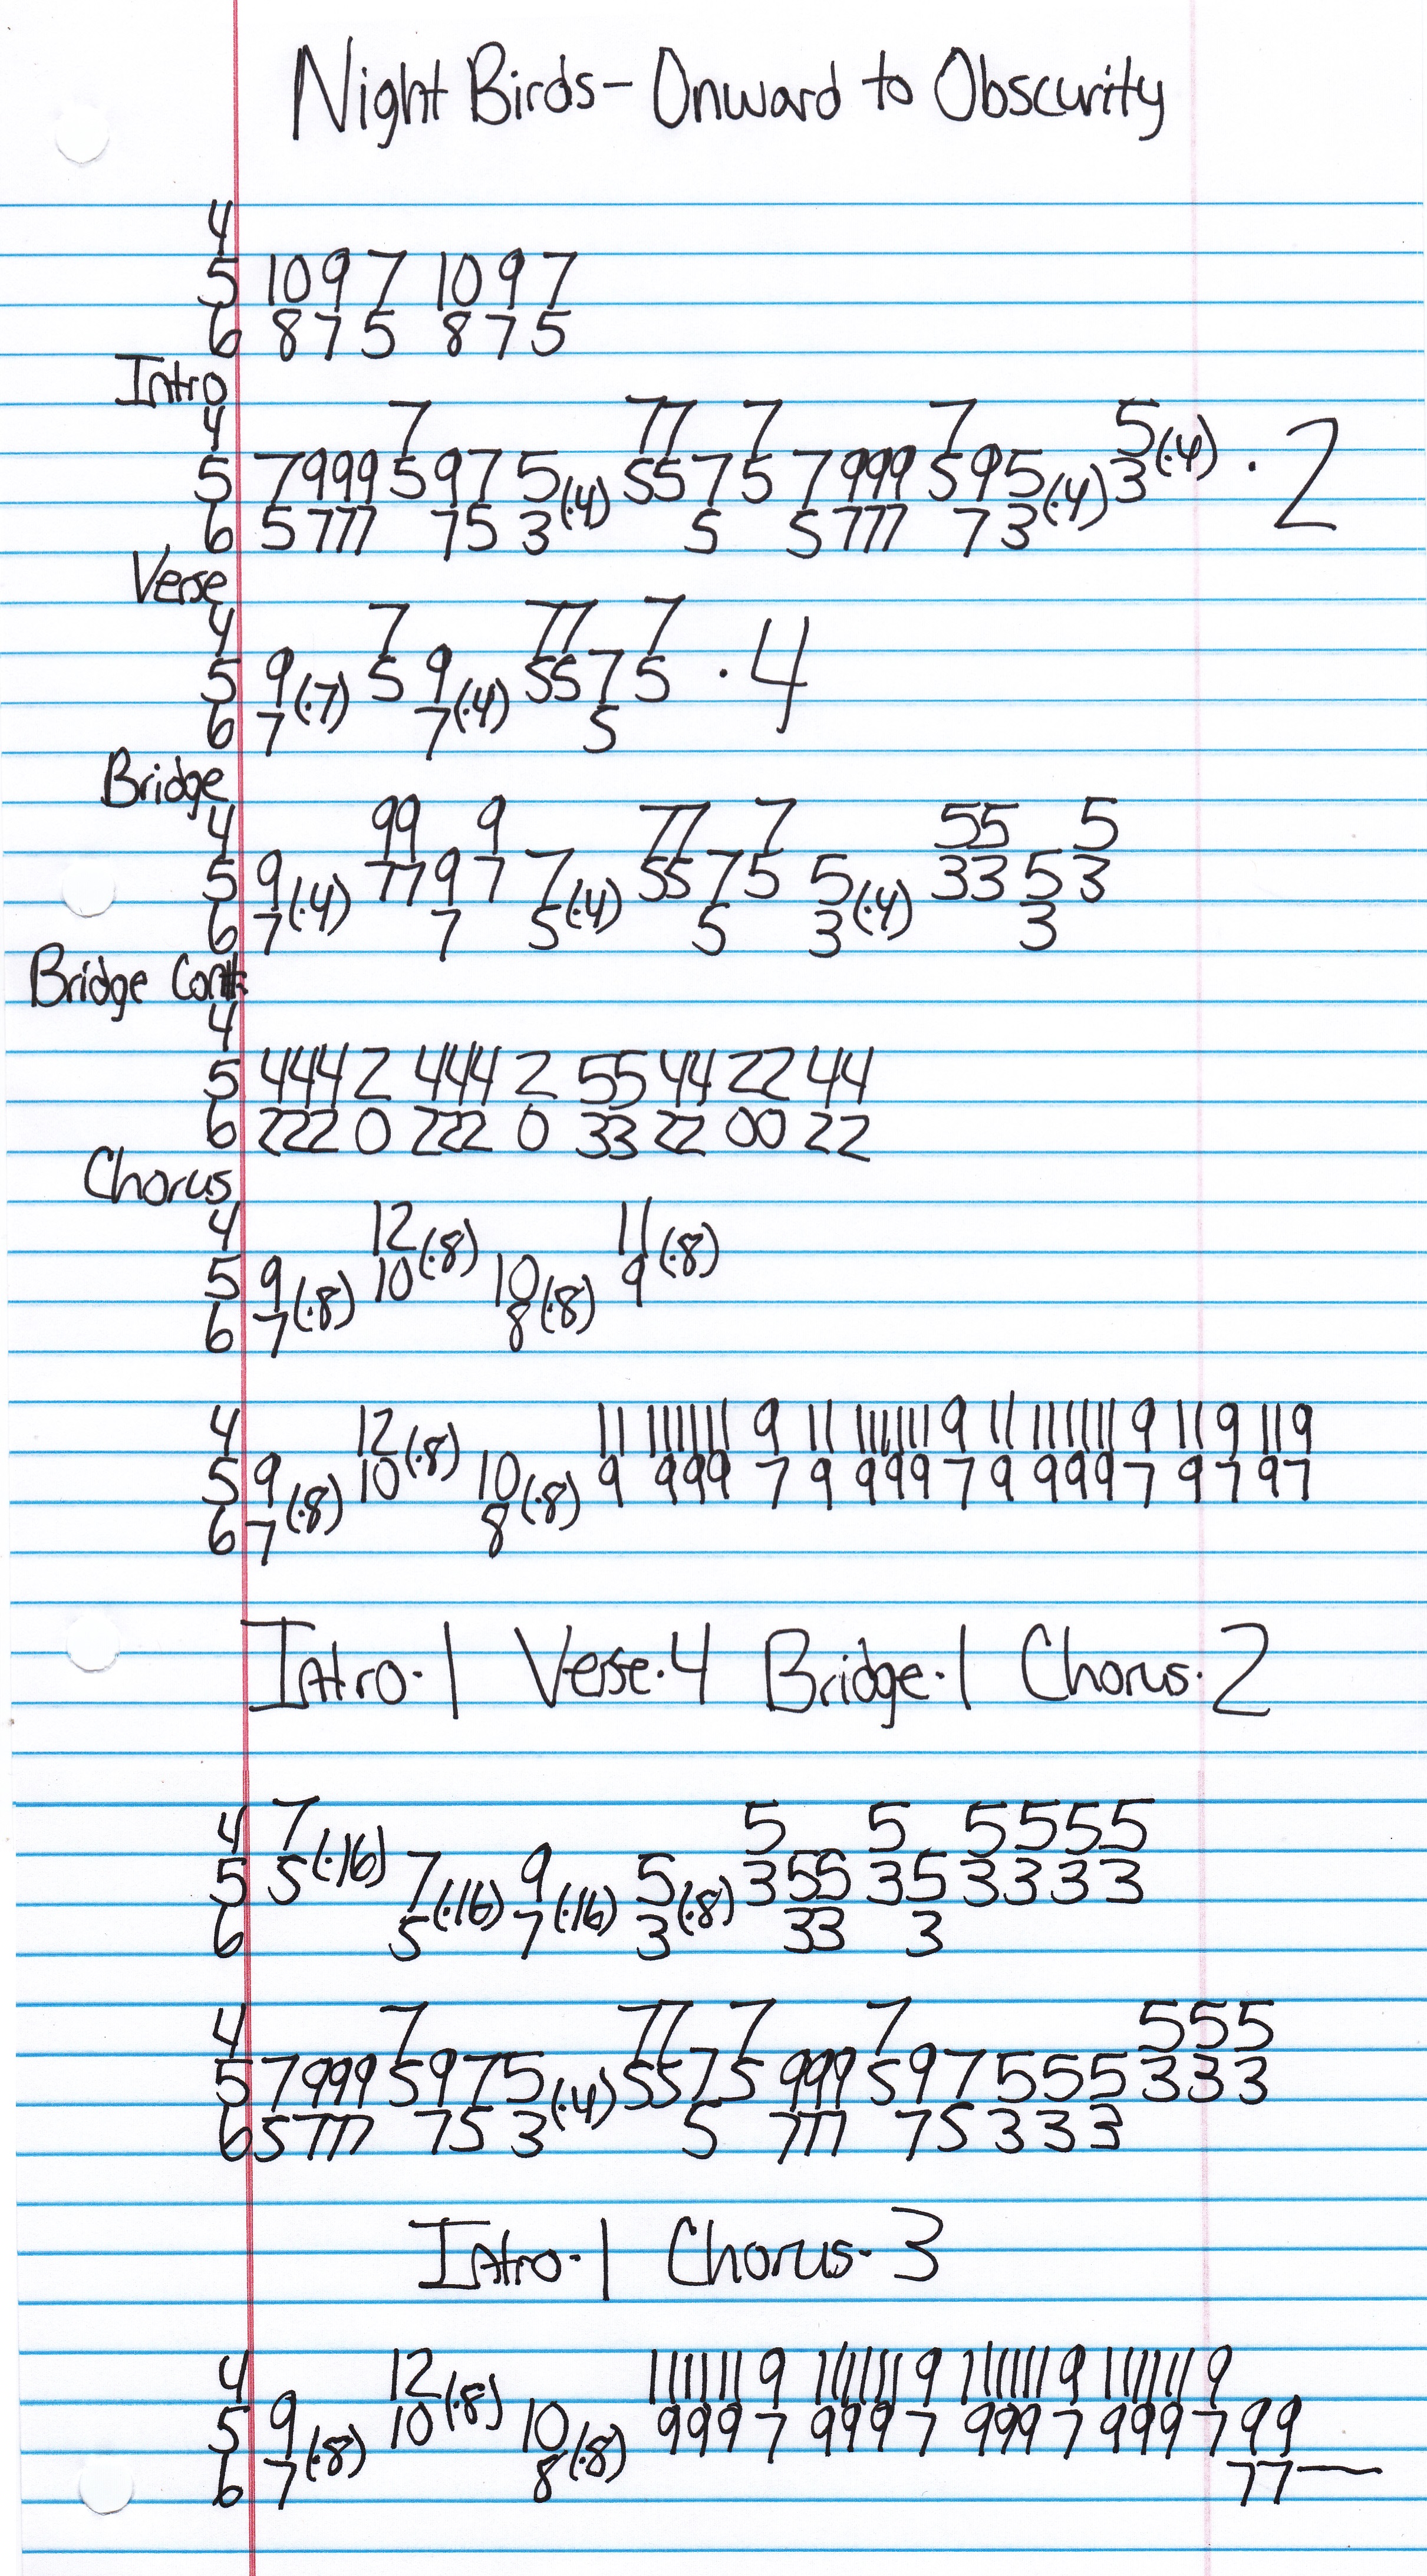 Night Birds - Onward to Obscurity
4
5 10 9 7 10 9 7
6 8 7 5 8 7 5
Intro
4 7 77 7 7 5
5 7999 5 9 7 5 (·4) 55 7 5 7 999 5 9 5 (·4) 3 (·4) · 2
6 5 777 7 5 3 5 5 777 7 3
Verse
4 7 77 7
5 9 (·7) 5 9 (·4) 55 7 5 · 4
6 7 7 5
Bridge
4 99 9 77 7 55 5
5 9 (·4) 77 9 7 7 (·4) 55 7 5 5 (·4) 33 5 3
6 7 7 5 5 3 3
Bridge Cont.
4
5 444 2 444 2 55 44 22 44
6 222 0 222 0 33 22 00 22
Chorus
4 12 (·8) 11 (·8)
5 9 (·8) 10 10 (·8) 9
6 7 8
4 12 (·8) 11 111111 9 11 111111 9 11 111111 9 11 9 11 9
5 9 (·8) 10 10 (·8) 9 999 7 9 999 7 9 999 7 9 7 9 7
6 7 8
Intro·1 Verse·4 Bridge·1 Chorus·2
4 7 (·16) 5 5 5 5 5 5
5 5 7 (·16) 9 (·16) 5 (·8) 3 55 3 5 3 3 3 3
6 5 7 3 33 3
4 7 77 7 7 5 5 5
5 7 999 5 9 7 5 (·4) 55 7 5 999 5 9 7 5 5 5 3 3 3
6 5 777 7 5 3 5 777 7 5 3 3 3
Intro·1 Chorus·3
4 12 (·8) 111111 9 111111 9 111111 9 111111 9
5 9 (·8) 10 10 (·8) 999 7 999 7 999 7 999 7 9 9
6 7 8 7 7